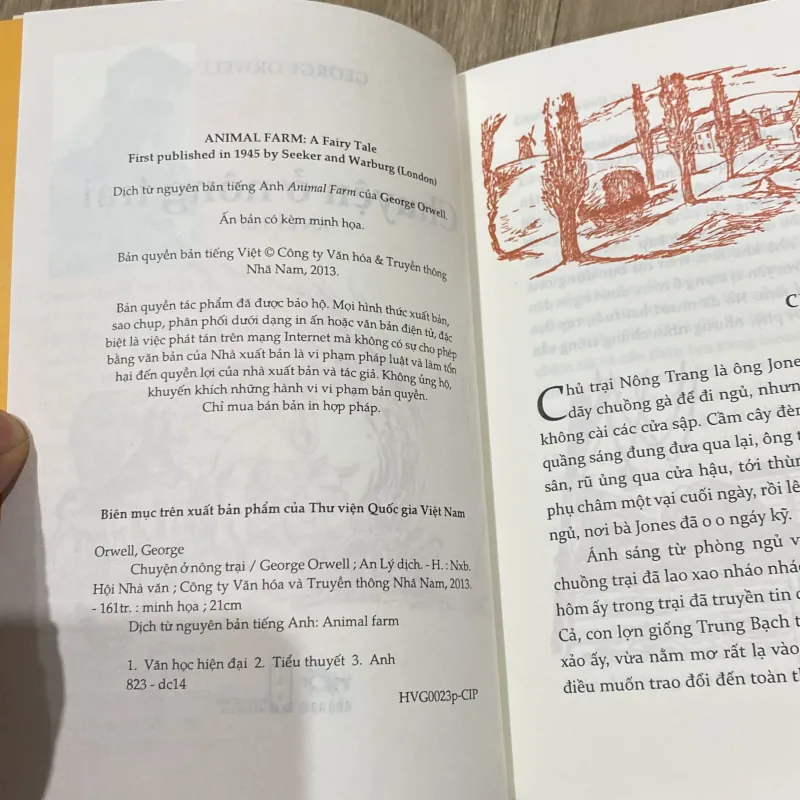 ANIMAL FARM: A Fairy Tale
First published in 1945 by Seeker and Warburg (London)
Dịch từ nguyên bản tiếng Anh Animal Farm của George Orwell.
Ấn bản có kèm minh họa.
Bản quyền bản tiếng Việt © Công ty Văn hóa & Truyền thông
Nhã Nam, 2013.
Bản quyền tác phẩm đã được bảo hộ. Mọi hình thức xuất bản,
sao chụp, phân phối dưới dạng in ấn hoặc văn bản điện tử, đặc
biệt là việc phát tán trên mạng Internet mà không có sự cho phép
bằng văn bản của Nhà xuất bản là vi phạm pháp luật và làm tổn
hại đến quyền lợi của nhà xuất bản và tác giả. Không ủng hộ,
khuyến khích những hành vi vi phạm bản quyền.
Chỉ mua bán bản in hợp pháp.
Biên mục trên xuất bản phẩm của Thư viện Quốc gia Việt Nam
Orwell, George
Chuyện ở nông trại / George Orwell ; An Lý dịch. - H. : Nxb.
Hội Nhà văn ; Công ty Văn hóa và Truyền thông Nhã Nam, 2013.
- 161tr. : minh họa ; 21cm
Dịch từ nguyên bản tiếng Anh: Animal farm
1. Văn học hiện đại 2. Tiểu thuyết 3. Anh
823 - dc14
HVG0023p-CIP
Chủ trại Nông Trang là ông Jones
dãy chuồng gà để đi ngủ, nhưn
không cài các cửa sập. Cầm cây đèn
quầng sáng đung đưa qua lại, ông
sân, rũ ủng qua cửa hậu, tới thùn
phụ châm một vại cuối ngày, rồi lê
ngủ, nơi bà Jones đã o o ngáy kỹ.
Ánh sáng từ phòng ngủ v
chuồng trại đã lao xao nháo nhá
hôm ấy trong trại đã truyền tin
Cả, con lợn giống Trung Bạch t
xảo ấy, vừa nằm mơ rất lạ vào
điều muốn trao đổi đến toàn th